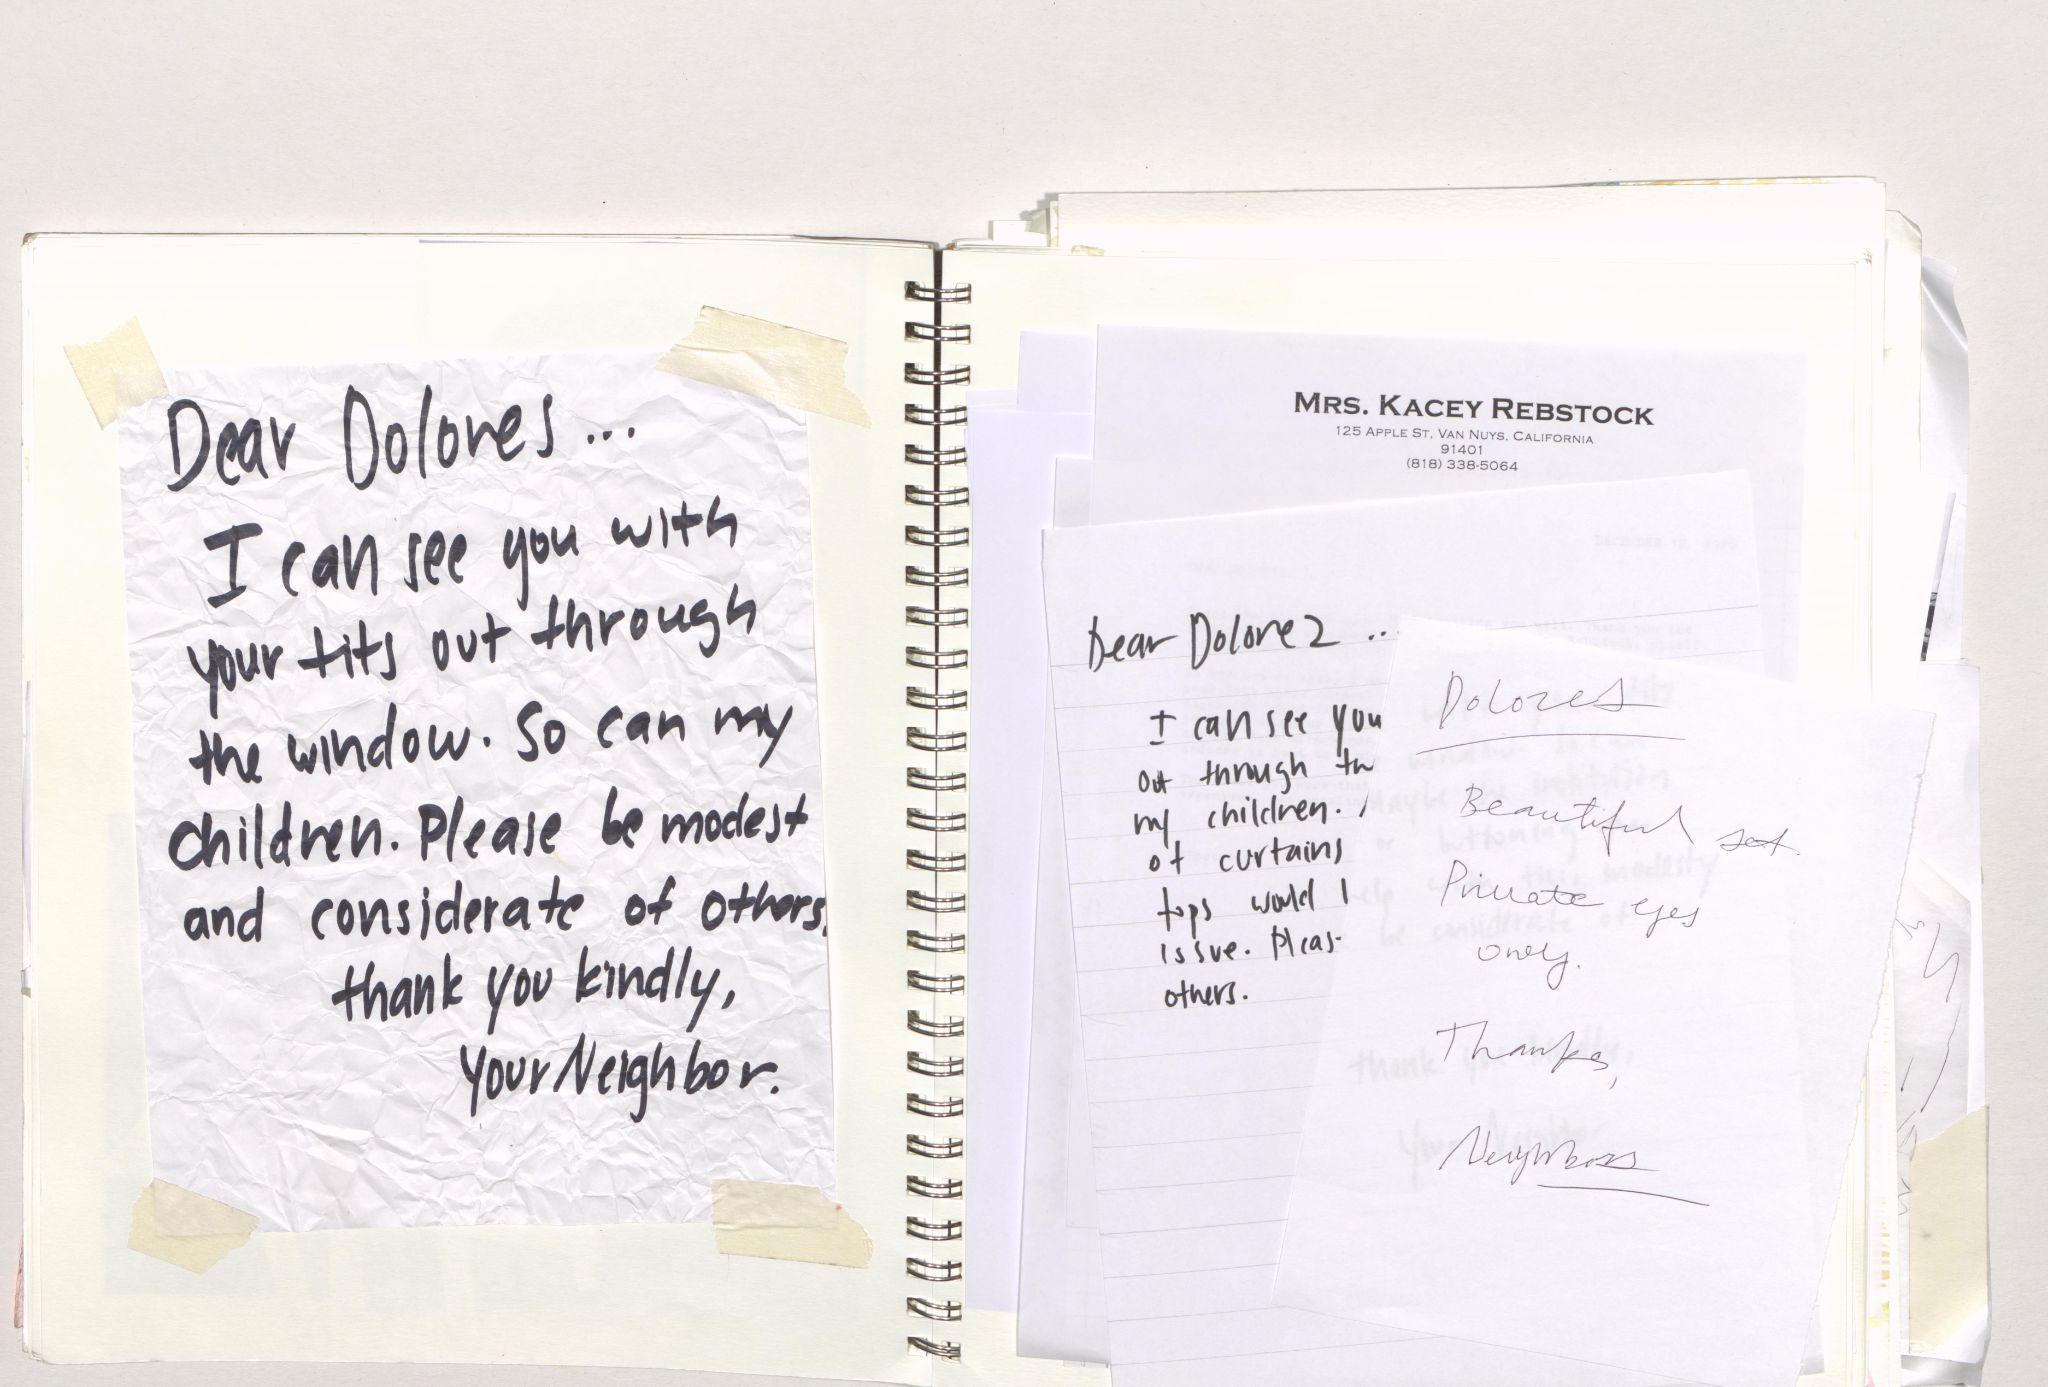 Dear Dolores...
I can see you with
your tits out through
the window. So can my
children. Please be modest
and considerate of others.
thank you kindly,
Your Neighbor.
MRS. KACEY REBSTOCK
125 APPLE ST, VAN NUYS, CALIFORNIA
91401
(818) 338-5064
Dear Dolorez...
I can see you
out through
my children.
of curtains
tops would
issue. Pleas
others.
Dolores
Beautiful set.
Private eyes
only.
Thanks,
Neighbors